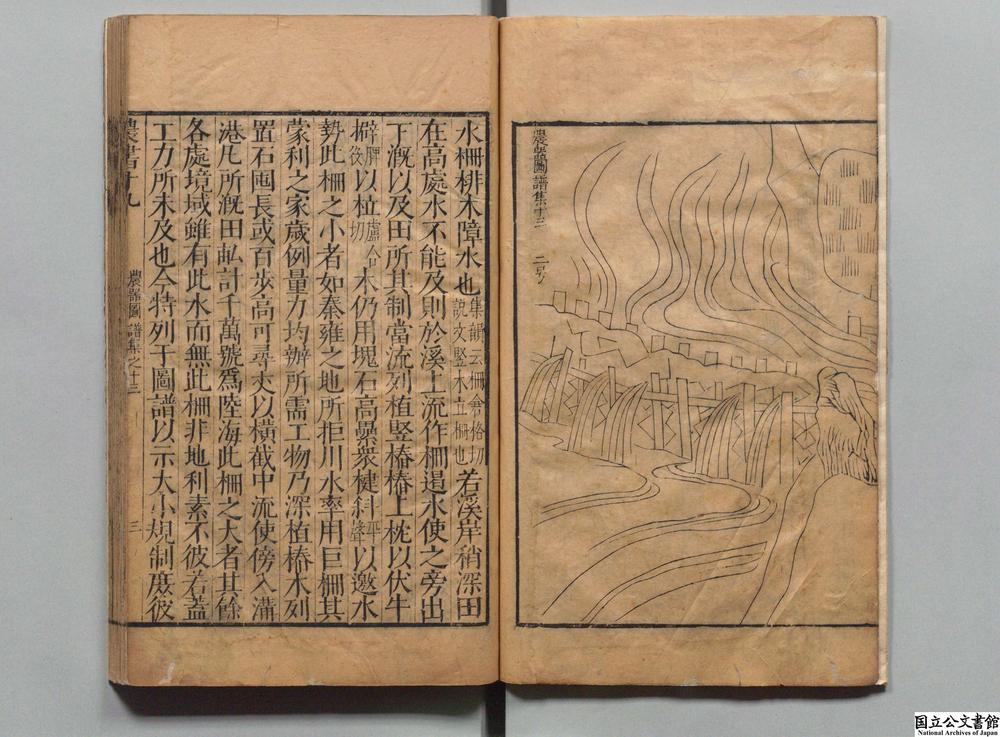 農器圖譜集十三
水柵排木障水也集韻云柵測革格切說文豎木立柵也若溪岸稍深田
在高處水不能及則於溪上流作柵遏水使之旁出
下溉以及田所其制當流列植豎樁樁上枕以伏牛
擗以拉木仍用塊石高壘衆楗斜以邀水
勢此柵之小者如秦雍之地所拒川水率用巨柵其
蒙利之家歲例量力均辦所需工物乃深植樁木列
置石囤長或百步高可尋丈以橫截中流使傍入溝
港凡所溉田畆計千萬號爲陸海此柵之大者其餘
各處境域雖有此水而無此柵非地利素不彼若蓋
工力所未及也今特列于圖譜以示大小規制庶彼
農書十九
農器圖譜集之十三
三
国立公文書館
National Archives of Japan